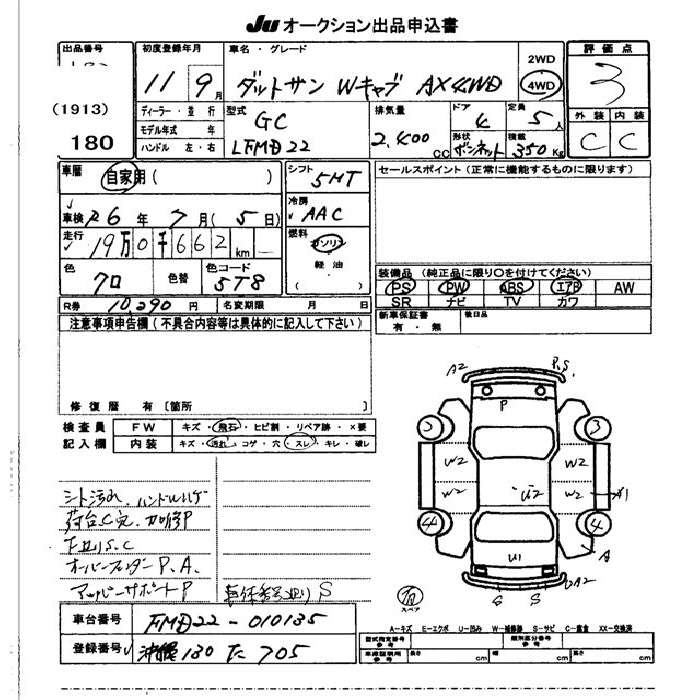 JU オークション出品申込書
出品番号
(1913)
180
初度登録年月
11 9月
車名・グレード
ダットサン Wキャブ AX4WD
2WD
4WD
評価点
3
外装 内装
C C
ディーラー・並行
モデル年式 年
ハンドル 左・右
型式
GC
LFMD22
排気量
2,400 CC
ドア
4
定員
5人
形状
ボンネット
積載
350Kg
車歴
自家用( )
車検 R6年7月(5日)
走行
19万0千662km
色
クロ
色替
色コード
5T8
シフト
5MT
冷房
AAC
燃料
ガソリン
軽油
( )
セールスポイント(正常に機能するものに限ります)
装備品(純正品に限り○を付けてください)
PS PW ABS エアB AW
SR ナビ TV カワ
R券 10,290円 名変期限 月 日
新車保証書
有・無
後日品
注意事項申告欄(不具合内容等は具体的に記入して下さい)
修復歴 有〔箇所 〕
検査員
記入欄
FW キズ・飛石・ヒビ割・リペア跡・×要
内装 キズ・汚れ・コゲ・穴・スレ・キレ・破レ
シート汚れ、ハンドルハゲ
荷台C穴、
下廻りS.C
オーバーフェンダーP.A.
A2
P.S
P
3
3
W2
W2
W2
U2
W2
A1
4
4
A
U1
UA2
S S
スペア
A−キズ E−エクボ U−凹み W−補修跡 S−サビ C−腐食 XX−交換済
車台番号 FMD22-010135
登録番号 沖縄 130 た 705
cm
cm
cm